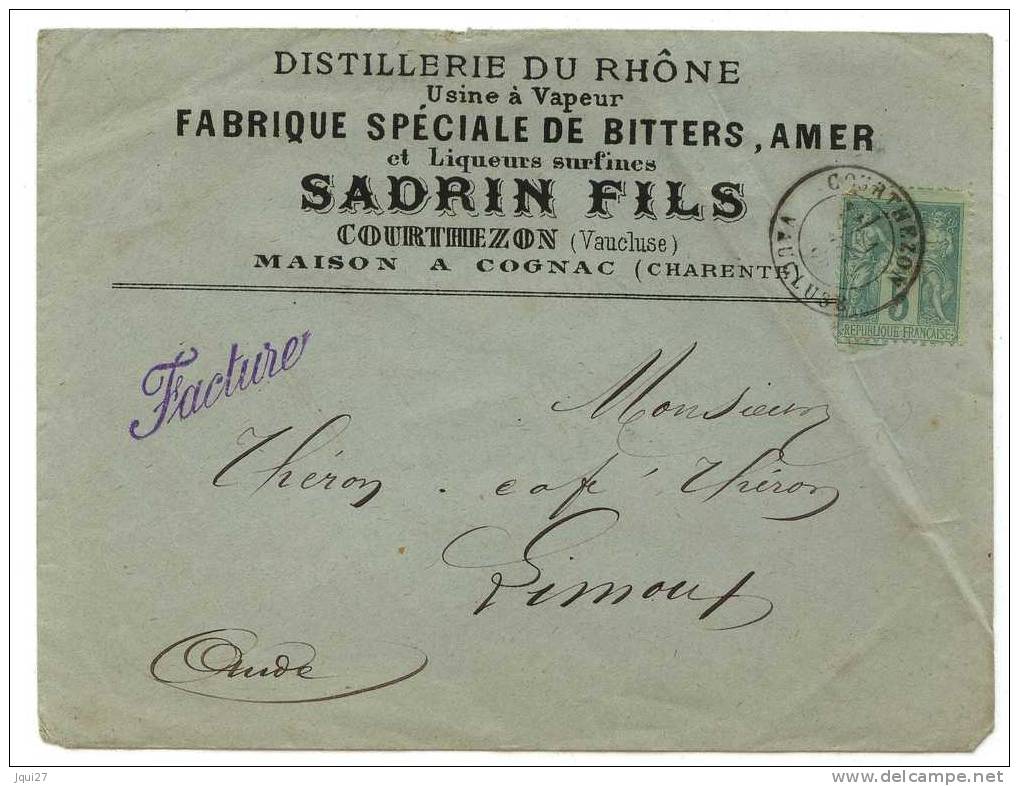 DISTILLERIE DU RHÔNE
Usine à Vapeur
FABRIQUE SPÉCIALE DE BITTERS, AMER
et Liqueurs surfines
SADRIN FILS
COURTHEZON (Vaucluse)
MAISON A COGNAC (CHARENTE)
COURTHEZON
VAUCLUSE
5
REPUBLIQUE FRANÇAISE
Facture
Monsieur
Théron . café Théron
Limoux
Aude
Jqui27
delcampe.net